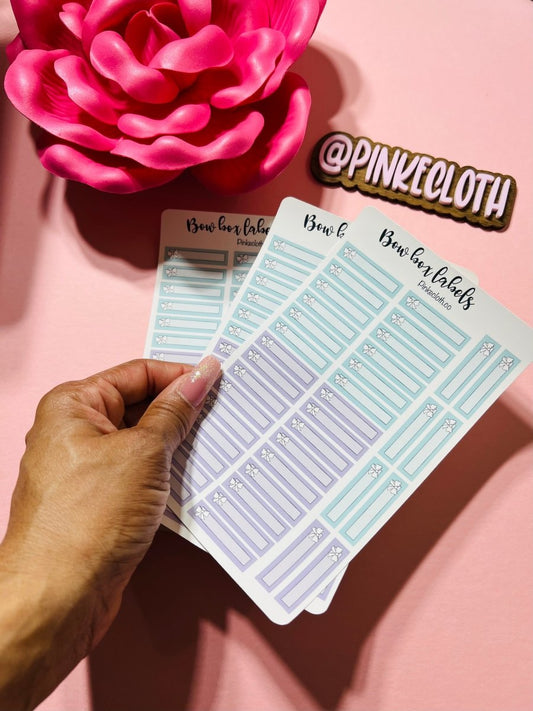 @PINKECLOTH
Bow box labels
Pinkecloth.co
Bow box labels
Bow box labels
Pinkecloth.co